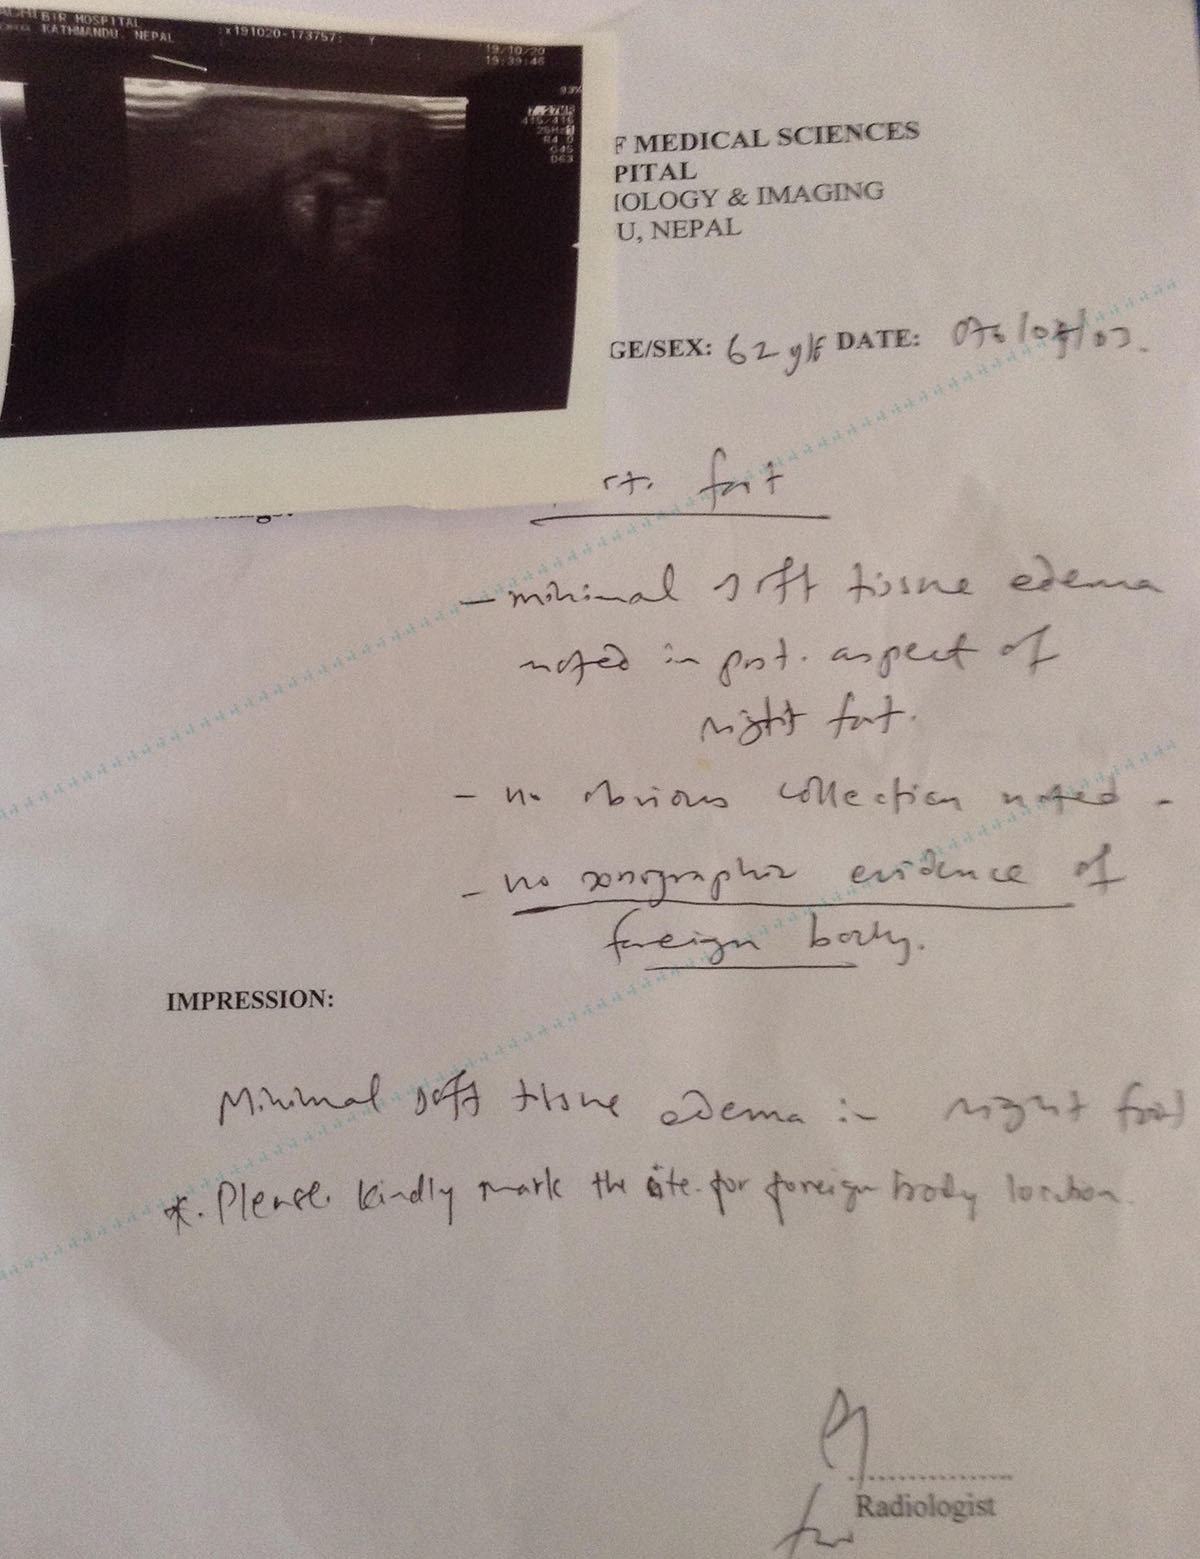 BIR HOSPITAL
KATHMANDU. NEPAL
:x191020-173757:
19/10/20
19:39:46
F MEDICAL SCIENCES
PITAL
OLOGY & IMAGING
U, NEPAL
GE/SEX: 62 y/F DATE: 076/07/03.
rt. foot
- minimal soft tissue edema
noted in post. aspect of
right foot.
- no obvious collection noted -
- no sonographic evidence of
foreign body.
IMPRESSION:
Minimal soft tissue edema in right foot
*. Please kindly mark the site for foreign body location.
for
Radiologist